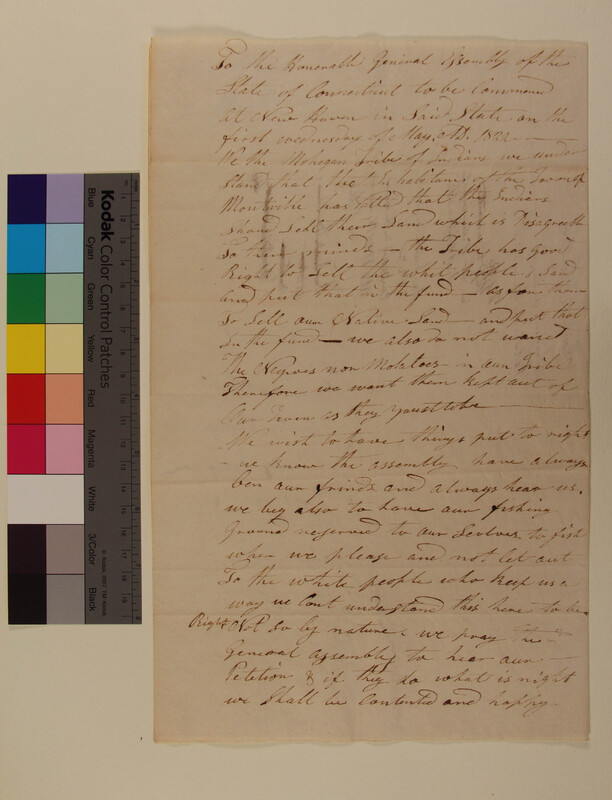 To the Honorable General Assembly of the
State of Connecticut to be Convened
at New Haven in Said State on the
first wednesday of May, AD. 1822 —
We the Mohegan Tribe of Indians we under
stand that the Inhabitants of the Town of
Montville has that the Indians
should Sell their Land which is Disagreeth
to their minds — the Tribe has Good
Right to Sell the whit people Land
and put that in the fund — as for them
to Sell our Native Land — and put that
in the fund — we also do not want
The Negroes nor Molatoes in our Tribe
Therefore we want them kept out of
Our Town as they youst to be
We wish to have things put to right
- we know the assembly have always
ben our frinds and always hear us.
we beg also to have our fishing
Ground reserved to our Selves to fish
when we please and not let out
To the white people who keep us a
way we Cant understand this here to be
Right Not so by nature we pray the
General assembly to hear our
Petetion & if they do what is right
we Shall be Contented and happy
Kodak Color Control Patches
Blue
Cyan
Green
Yellow
Red
Magenta
White
3/Color
Black
© Kodak, 2007 TM: Kodak